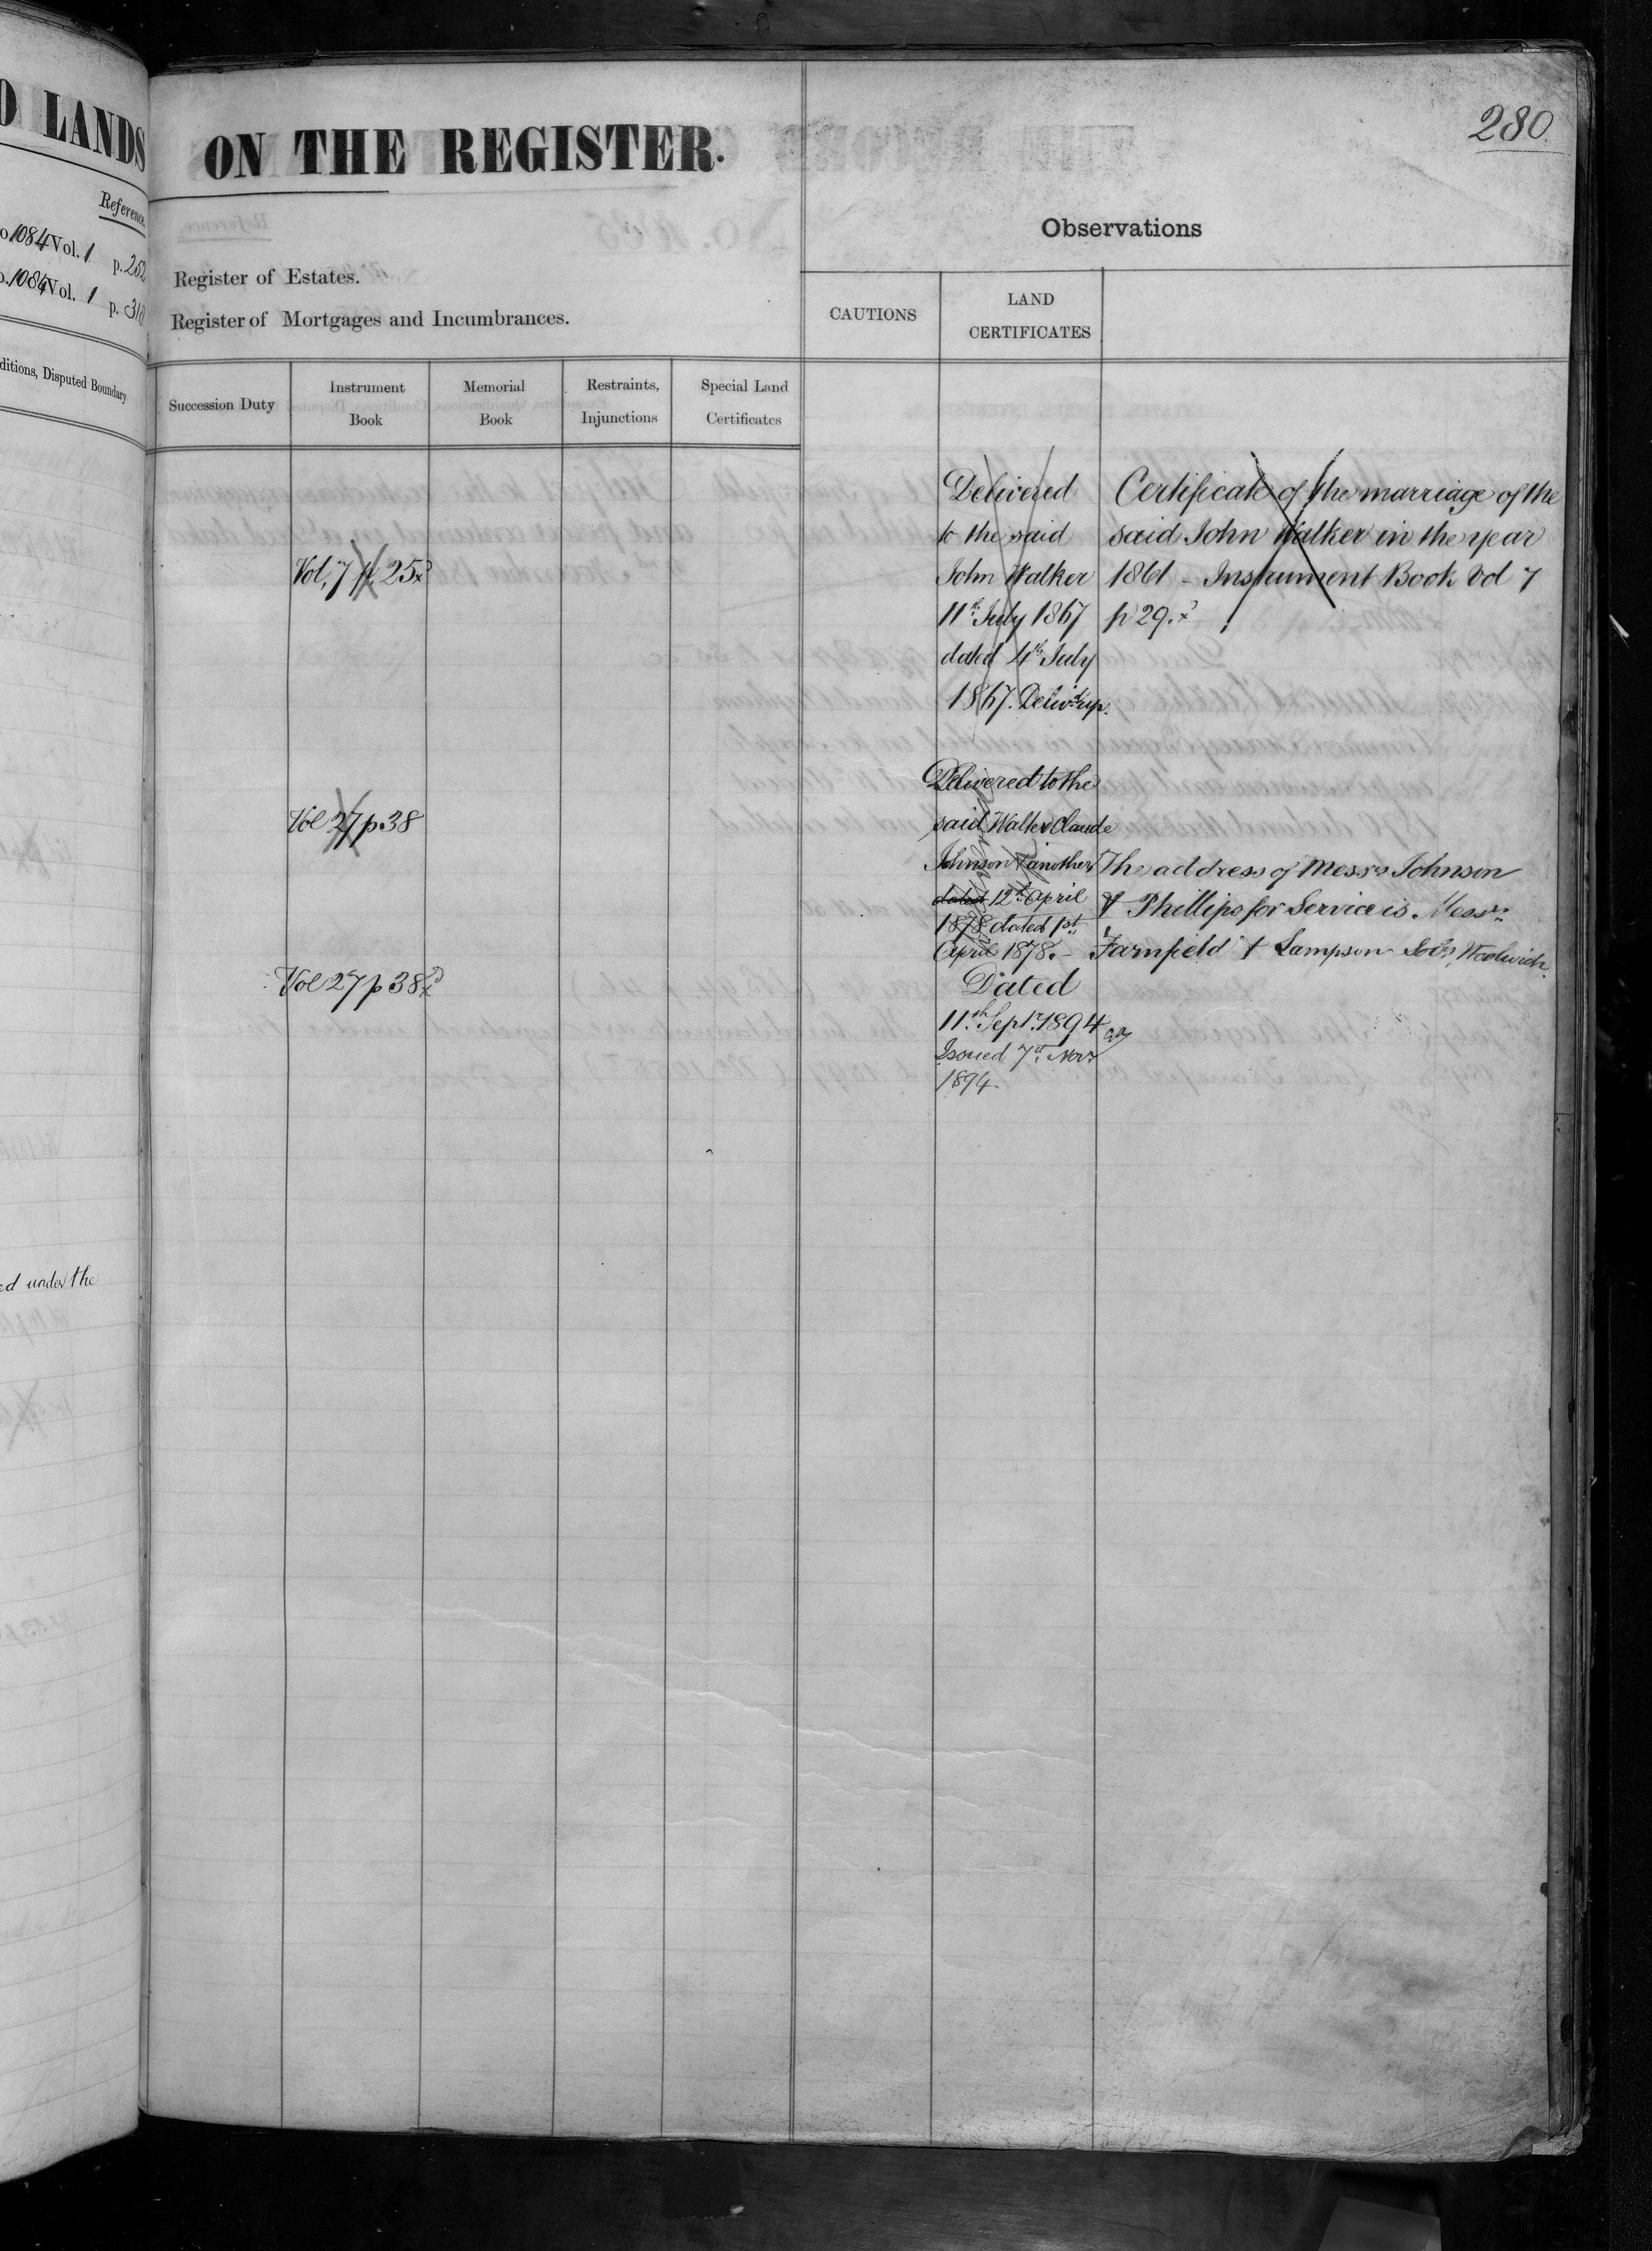 LANDS
Reference.
1084 Vol. 1 p. 252
1084 Vol. 1 p. 310
ditions, Disputed Boundary
ed under the
280.
ON THE REGISTER.
Register of Estates.
Register of Mortgages and Incumbrances.
Observations
CAUTIONS
LAND
CERTIFICATES
Succession Duty
Instrument
Book
Memorial
Book
Restraints,
Injunctions
Special Land
Certificates
Vol. 7 p. 25
Vol 27 p. 38
Vol 27 p 38
Delivered
to the said
John Walker
11th July 1867
dated 4th July
1867. Delivd up.
Delivered to the
said Walter Claude
Johnson & another
dated 12th April
1878 dated 1st
April 1878. –
Dated
11th Septr. 1894
Issued 7th Novr
1894.
Certificate of the marriage of the
said John Walker in the year
1861 – Instrument Book Vol 7
p 29.
The address of Messrs Johnson
& Phillips for Service is. Messrs
Farnfield & Sampson Solrs, Woolwich.